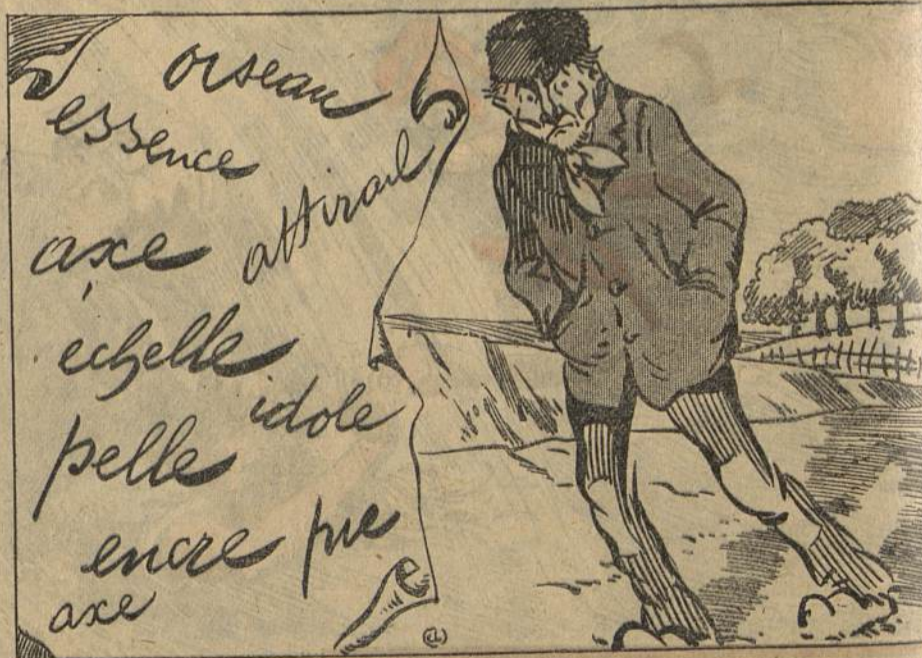 oiseau
essence
attirail
axe
échelle
idole
pelle
encre pie
axe